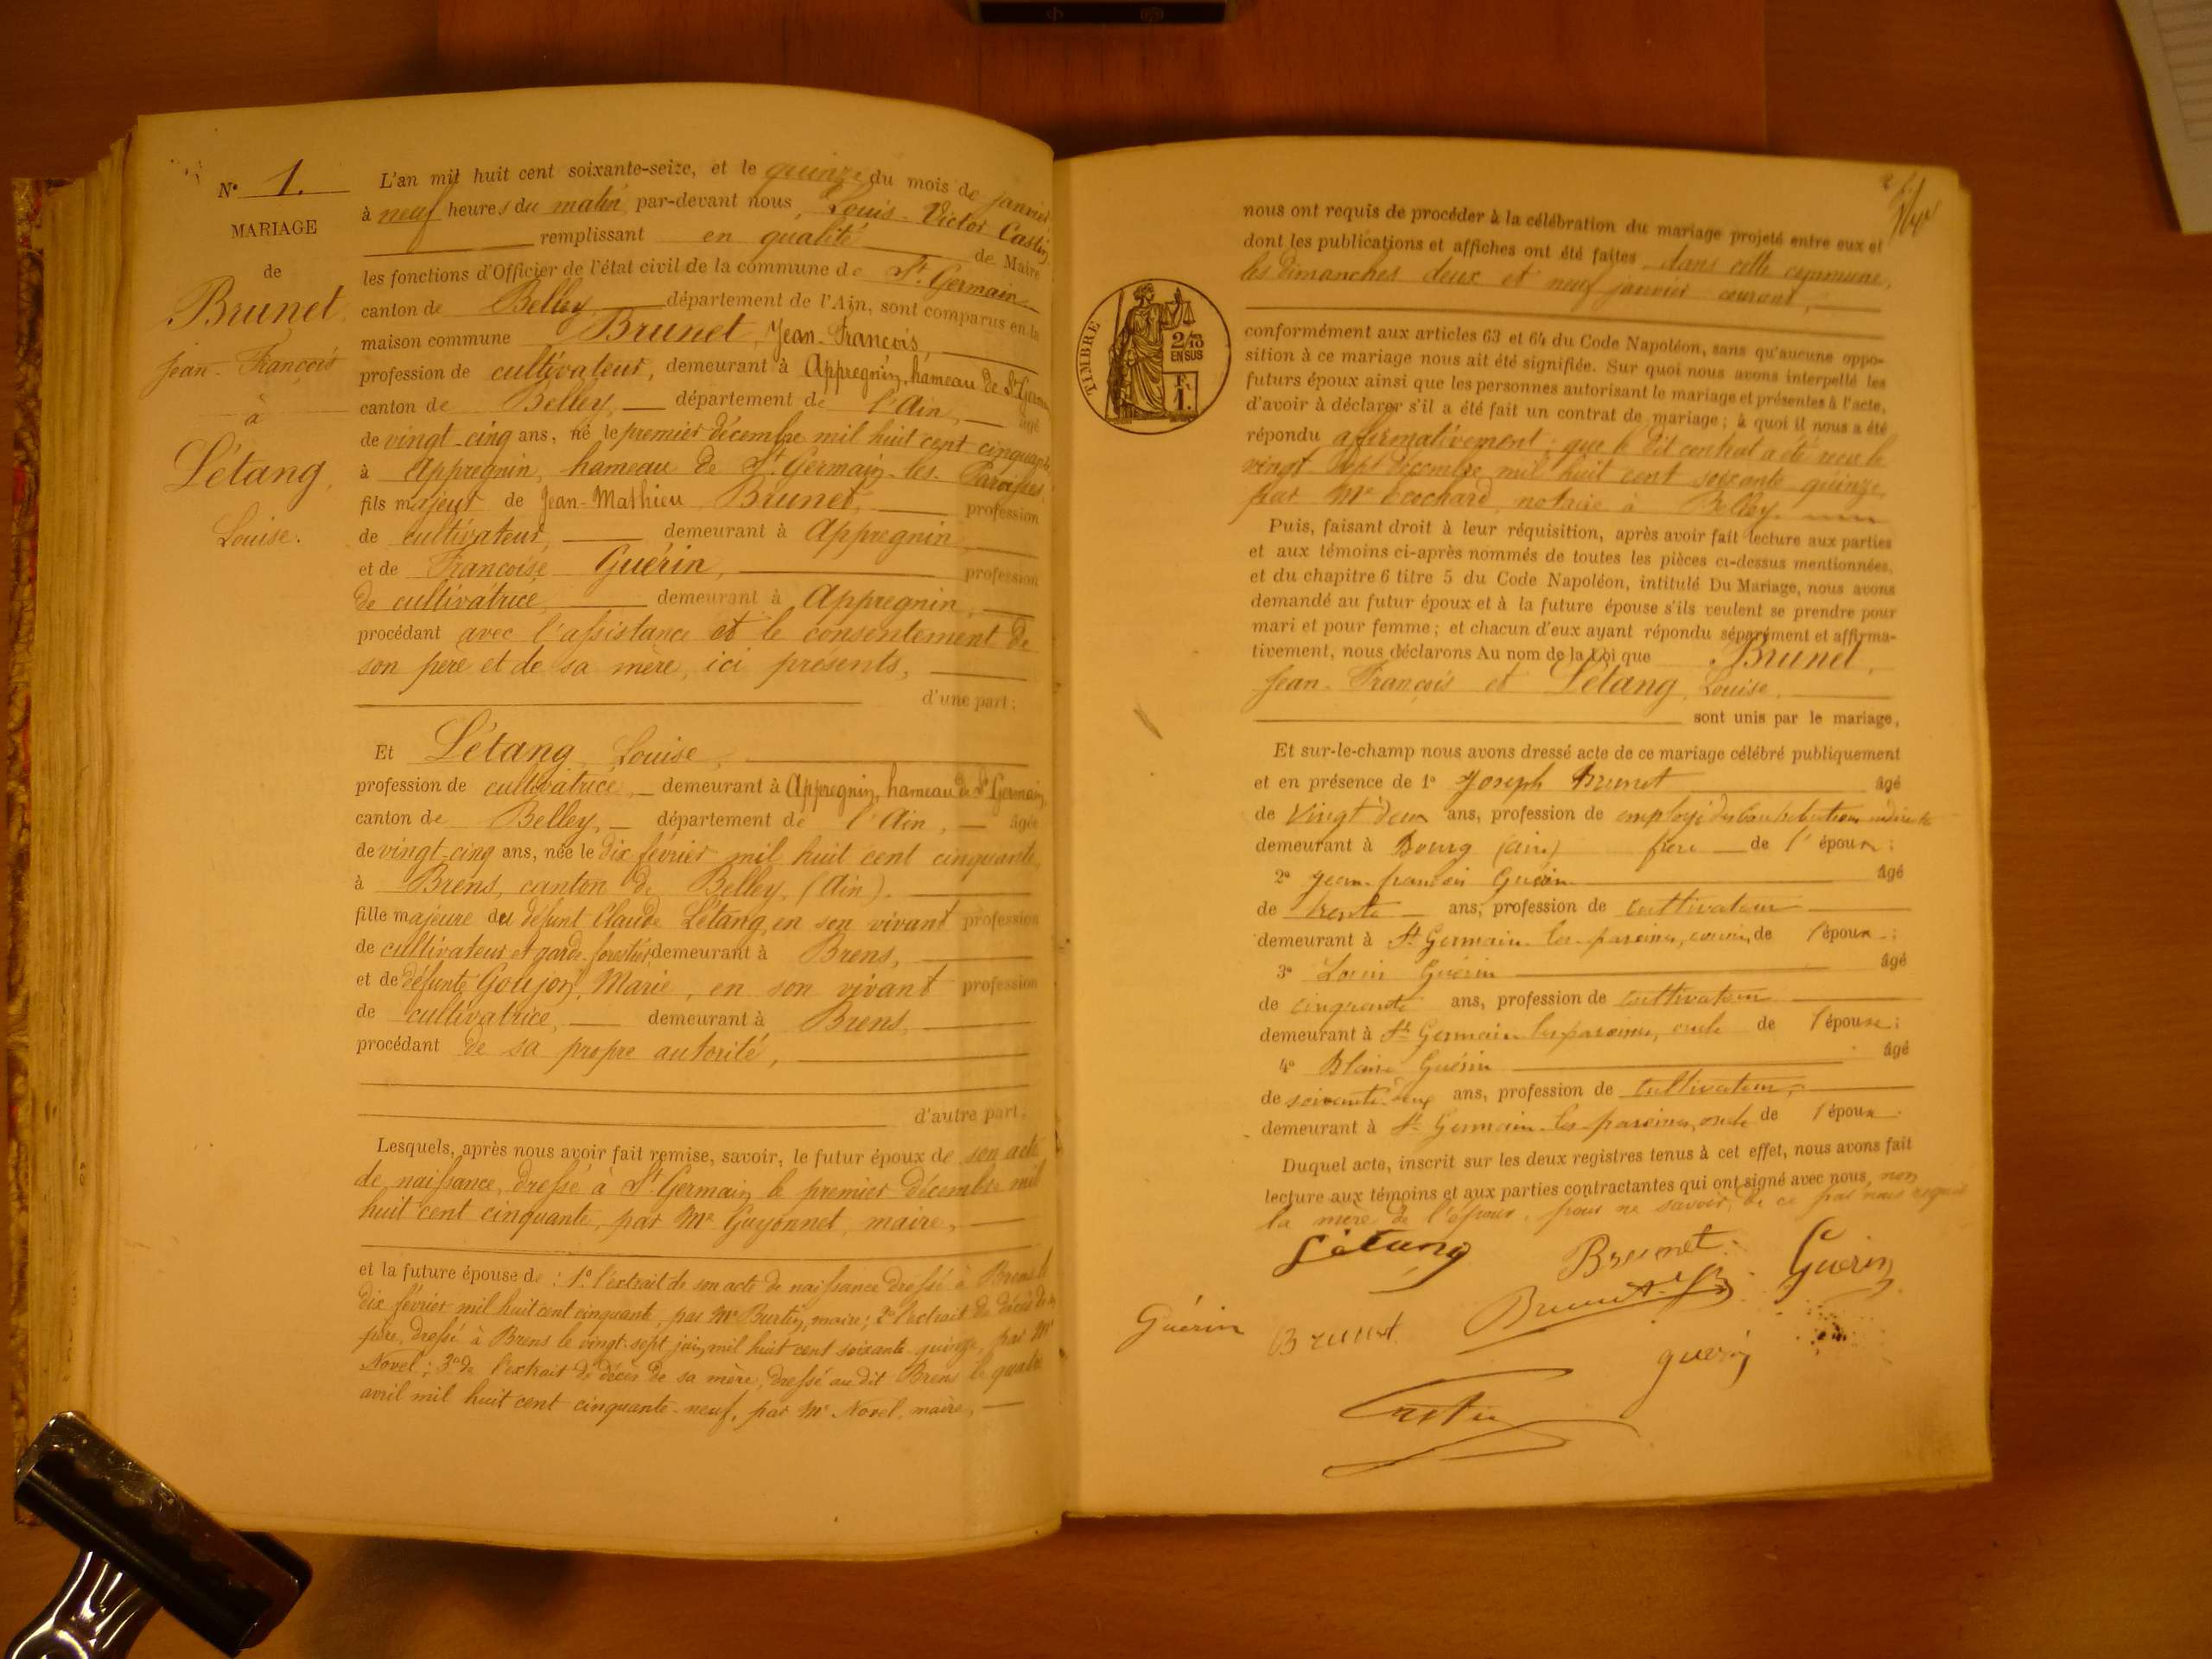 N° 1.
MARIAGE
de
Brunet
Jean-François
à
Létang,
Louise.
L'an mil huit cent soixante-seize, et le quinze du mois de janvier
à neuf heures du matin, par-devant nous, Louis-Victor Castin
remplissant en qualité de Maire
les fonctions d'Officier de l'état civil de la commune de St. Germain
canton de Belley département de l'Ain, sont comparus en la
maison commune Brunet, Jean-François,
profession de cultivateur, demeurant à Appregnin, hameau de St Germain
canton de Belley, département de l'Ain, âgé
de vingt-cinq ans, né le premier décembre mil huit cent cinquante
à Appregnin, hameau de St. Germain-les-Paroisses,
fils majeur de Jean-Mathieu Brunet, profession
de cultivateur, demeurant à Appregnin,
et de Françoise Guérin, profession
de cultivatrice, demeurant à Appregnin,
procédant avec l'assistance et le consentement de
son père et de sa mère, ici présents,
d'une part;
Et Létang, Louise,
profession de cultivatrice, demeurant à Appregnin, hameau de St Germain,
canton de Belley, département de l'Ain, âgée
de vingt-cinq ans, née le dix février mil huit cent cinquante,
à Brens, canton de Belley, (Ain).
fille majeure du défunt Claude Létang, en son vivant profession
de cultivateur et garde-forestier, demeurant à Brens,
et de défunte Goujon, Marie, en son vivant profession
de cultivatrice, demeurant à Brens,
procédant de sa propre autorité,
d'autre part;
Lesquels, après nous avoir fait remise, savoir, le futur époux de son acte
de naissance, dressé à St. Germain le premier décembre mil
huit cent cinquante, par Mr Guyonnet, maire,
et la future épouse de : 1° l'extrait de son acte de naissance dressé à Brens le
dix février mil huit cent cinquante, par Mr Burtin, maire; 2° l'extrait de décès de son
père, dressé à Brens le vingt-sept juin mil huit cent soixante-quinze, par Mr
Novel; 3° de l'extrait de décès de sa mère, dressé au dit Brens le quatre
avril mil huit cent cinquante-neuf, par Mr Novel, maire,
nous ont requis de procéder à la célébration du mariage projeté entre eux et
dont les publications et affiches ont été faites dans cette commune,
les dimanches deux et neuf janvier courant,
TIMBRE
2/10
EN SUS
F.
1.
conformément aux articles 63 et 64 du Code Napoléon, sans qu'aucune oppo-
sition à ce mariage nous ait été signifiée. Sur quoi nous avons interpellé les
futurs époux ainsi que les personnes autorisant le mariage et présentes à l'acte,
d'avoir à déclarer s'il a été fait un contrat de mariage; à quoi il nous a été
répondu affirmativement; que le dit contrat a été reçu le
vingt-sept décembre mil huit cent soixante-quinze,
par Me notaire à Belley.
Puis, faisant droit à leur réquisition, après avoir fait lecture aux parties
et aux témoins ci-après nommés de toutes les pièces ci-dessus mentionnées,
et du chapitre 6 titre 5 du Code Napoléon, intitulé Du Mariage, nous avons
demandé au futur époux et à la future épouse s'ils veulent se prendre pour
mari et pour femme; et chacun d'eux ayant répondu séparément et affirma-
tivement, nous déclarons Au nom de la Loi que Brunet,
Jean-François et Létang, Louise.
sont unis par le mariage,
Et sur-le-champ nous avons dressé acte de ce mariage célébré publiquement
et en présence de 1° Joseph Brunet âgé
de Vingt deux ans, profession de employé des Contributions indirectes
demeurant à Bourg (ain) frère de l'époux;
2° Jean-françois Guérin âgé
de trente ans, profession de Cultivateur
demeurant à St Germain-les-paroisses, cousin, de l'époux;
3° Louis Guérin âgé
de cinquante ans, profession de Cultivateur
demeurant à St Germain les paroisses, oncle de l'époux;
4° Blaise Guérin âgé
de ans, profession de Cultivateur,
demeurant à St Germain-les-paroisses, oncle de l'époux.
Duquel acte, inscrit sur les deux registres tenus à cet effet, nous avons fait
lecture aux témoins et aux parties contractantes qui ont signé avec nous, non
la mère de l'époux, pour ne savoir, de ce par nous requis
Létang Brunet Guérin
Guérin Brunet Brunet
guerin
Castin